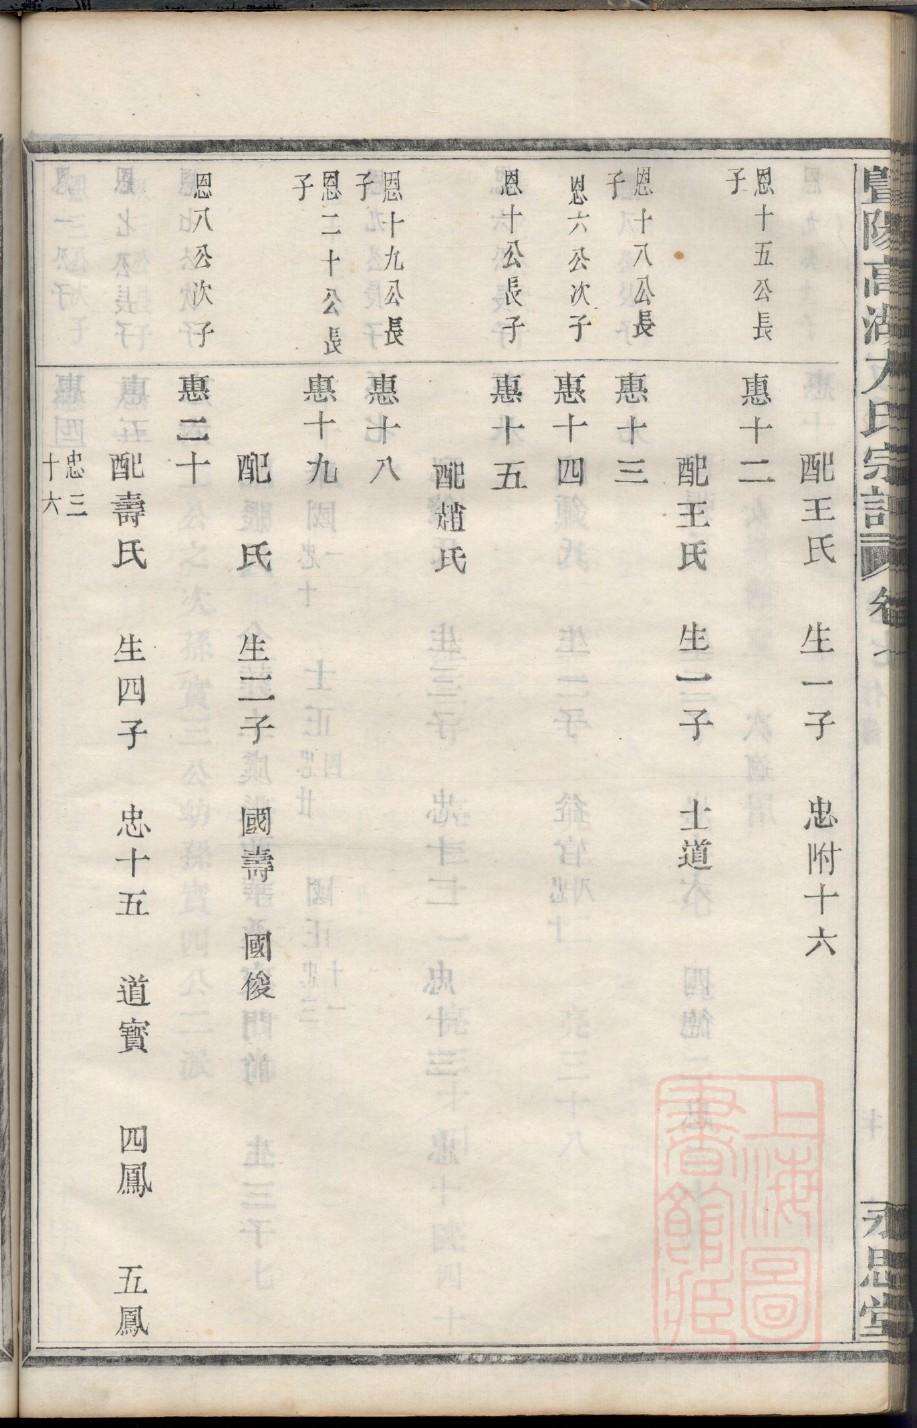 暨陽高湖方氏宗譜
永思堂
配王氏 生一子 忠附十六
恩十五公長子 惠十二
配王氏 生一子 士道
恩十八公長子 惠十三
恩六公次子 惠十四
恩十公長子 惠十五
配趙氏
恩十九公長子 惠十八
恩二十公長子 惠十九
配 氏 生二子 國壽 國俊
恩八公次子 惠二十
配壽氏 生四子 忠十五 道寶 四鳳 五鳳
忠三十六
上海圖書館藏